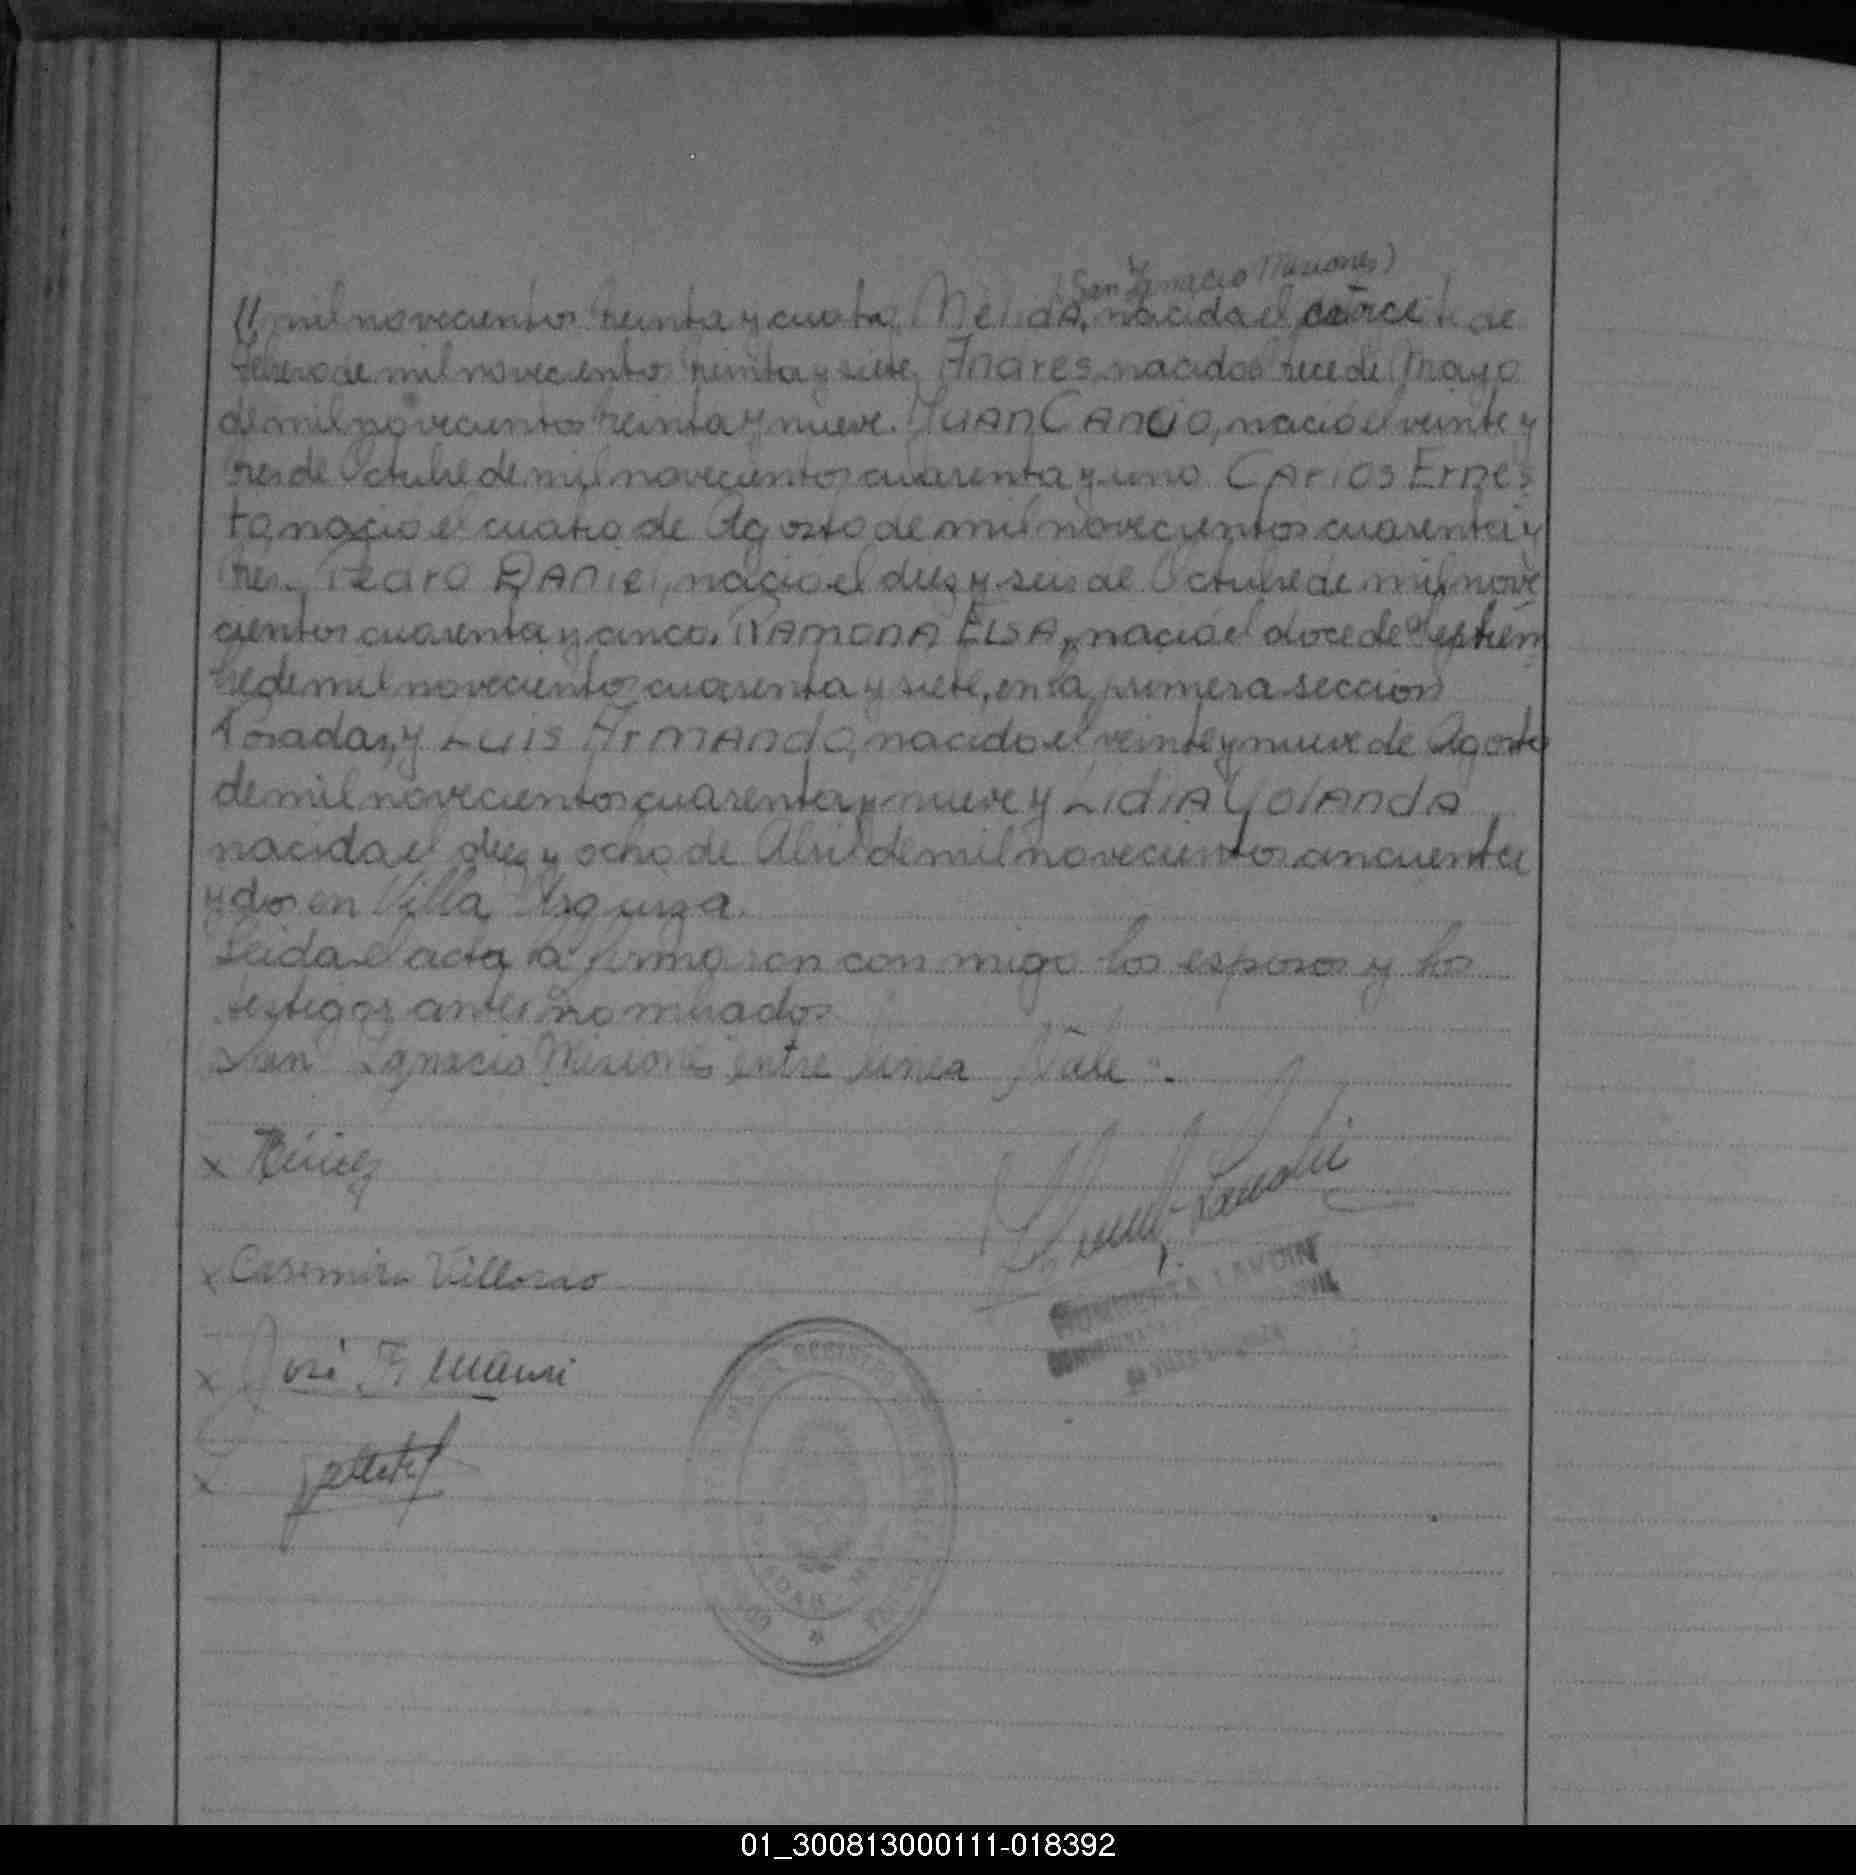 (San Ignacio Misiones)
// mil novecientos treinta y cuatro, Nélida, nacida el catorce de
Febrero de mil novecientos treinta y siete, Andres, nacido el trece de Mayo
de mil novecientos treinta y nueve. Juan Cancio, nació el veinte y
tres de Octubre de mil novecientos cuarenta y uno. Carlos Ernes
to, nació el cuatro de Agosto de mil novecientos cuarenta y
tres. Pedro Daniel, nació el diez y seis de Octubre de mil nove
cientos cuarenta y cinco. Ramona Elsa, nació el doce de Septiem
bre de mil novecientos cuarenta y siete, en la primera seccion
Posadas, y Luis Armando, nacido el veinte y nueve de Agosto
de mil novecientos cuarenta y nueve y Lidia Yolanda
nacida el diez y ocho de Abril de mil novecientos cincuenta
y dos en Villa Urquiza.
Leida el acta la firmaron con migo los esposos y los
testigos antes nombrados
San Ignacio Misiones entre linea Vale.
x
x Casemira Villorao
x José F.
x
REGISTRO